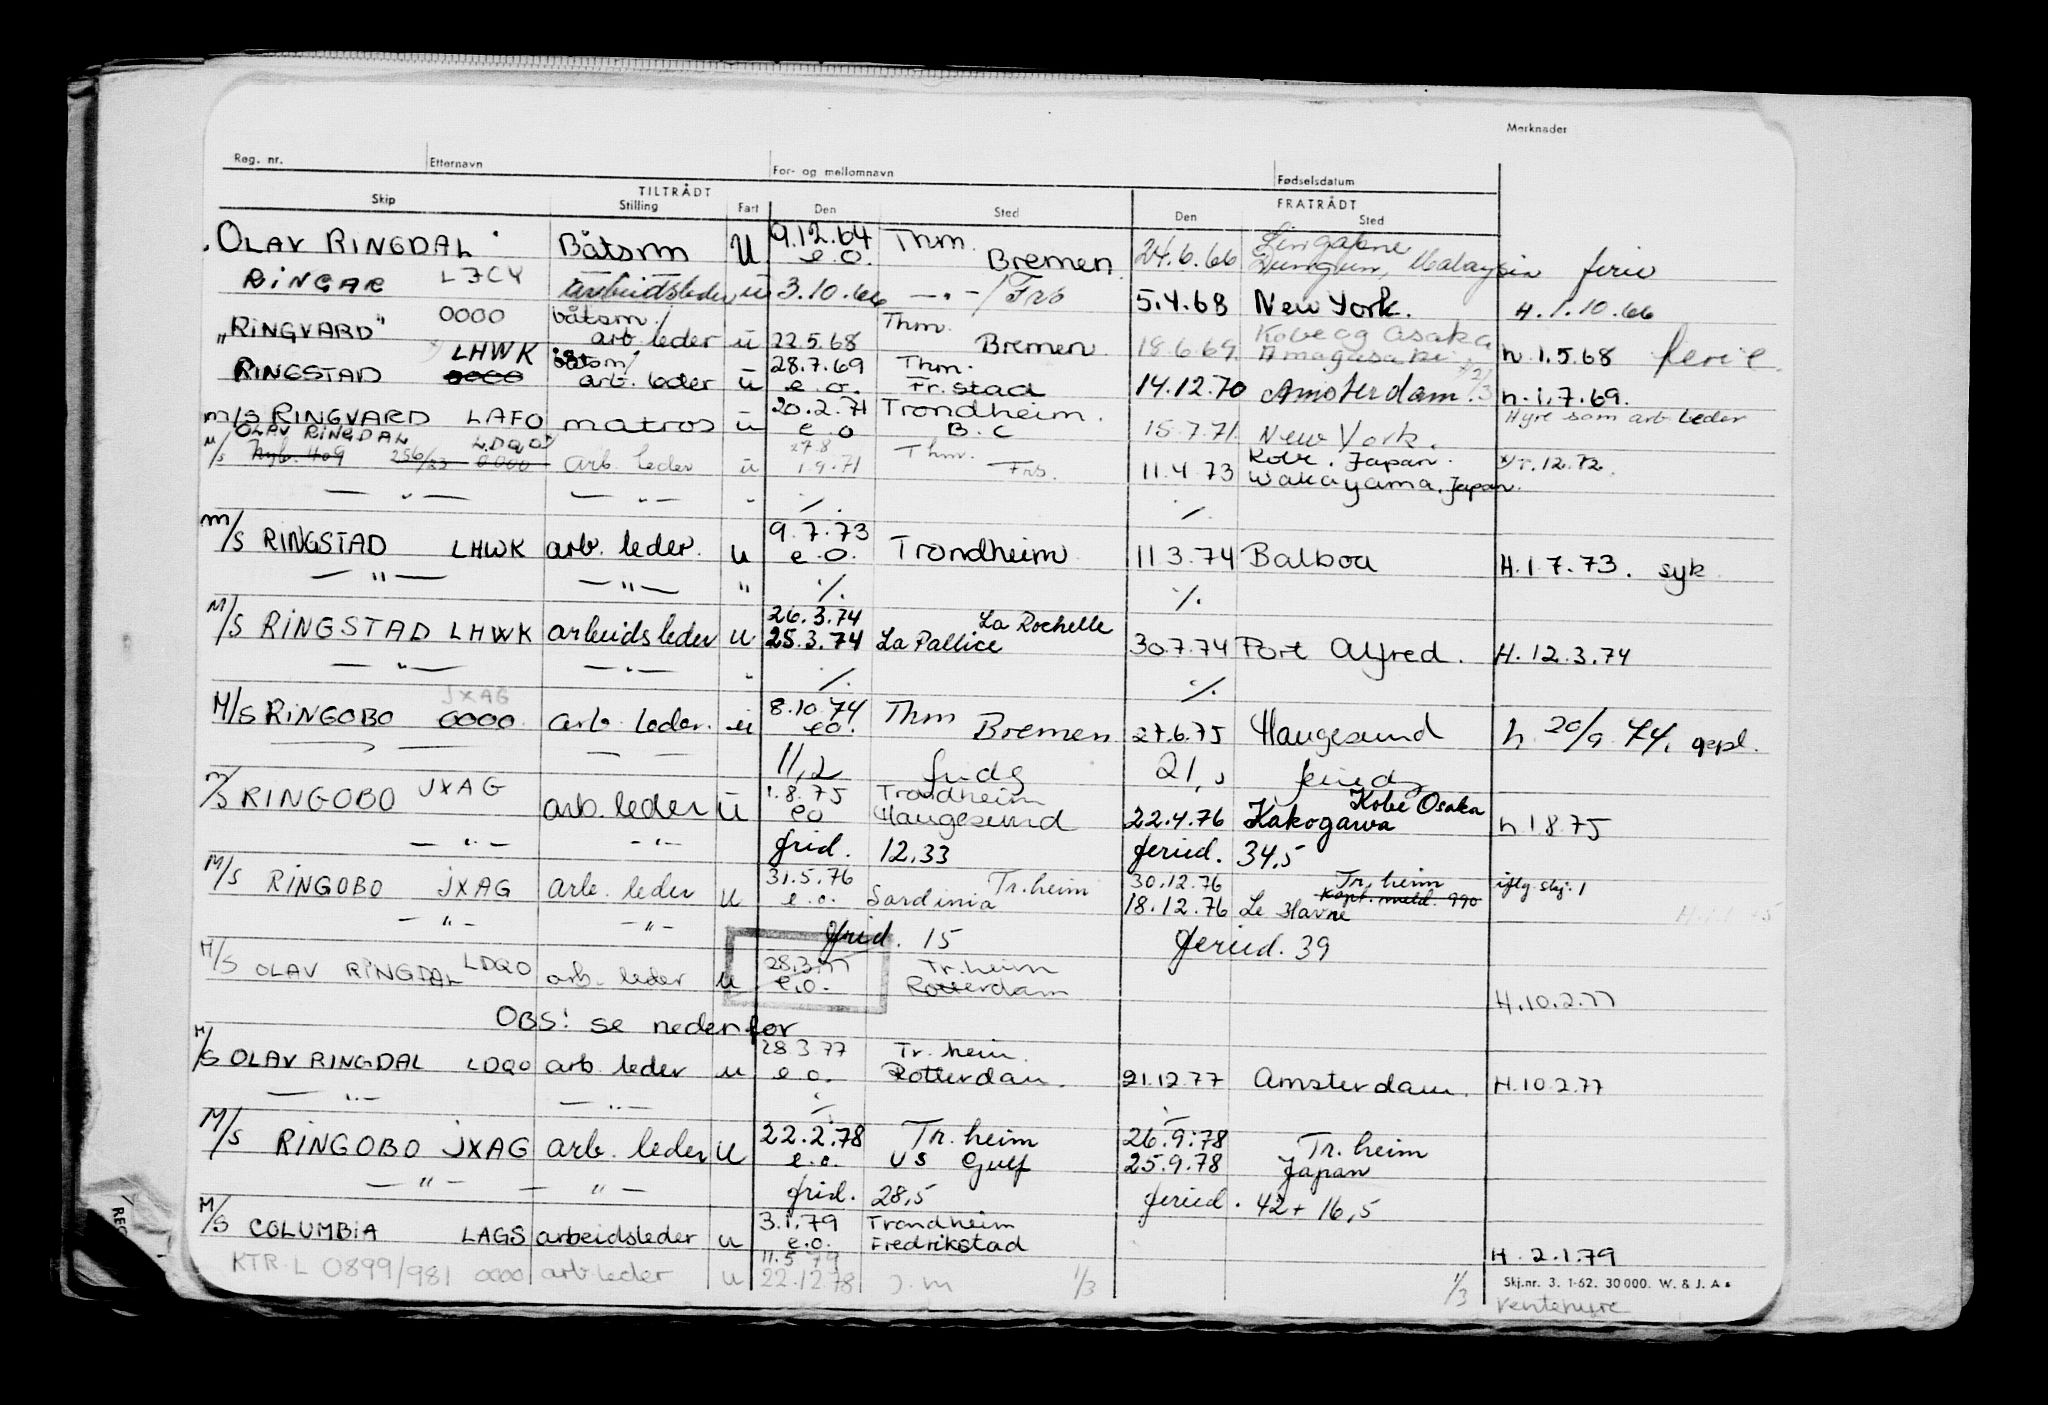 Merknader
Reg. nr. Etternavn For- og mellomnavn Fødselsdatum
TILTRÅDT FRATRÅDT
Skip Stilling Fart Den Sted Den Sted
OLAV RINGDAL Båtsm U 9.12.64 e.o. Thm. Bremen 24.6.66 Singapore Dungun, Malaysia ferie
RINGAR LJCY arbeidsleder u 3.10.66 — " — / Frs 5.4.68 New York. H. 1.10.66
"RINGVARD" 0000 båtsm / arb. leder u 22.5.68 Thm. Bremen 18.6.69 Kobe og Osaka Amagasaki h. 1.5.68 ferie
RINGSTAD 0000 LHWK båtsm / arb. leder u 28.7.69 e.o. Thm. Fr.stad 14.12.70 Amsterdam. h. 1.7.69.
M/S RINGVARD LAFO matros u 20.2.71 e.o Trondheim. B.C 15.7.71. New York. Hyre som arb leder
M/S Nyb. 409 OLAV RINGDAL 256/23 0000 LDQO arb. leder u 27.8 1.9.71 Thm. Frs. 11.4.73 Kobe. Japan. Wakayama. Japan. x/ T. 12.72.
— " — — " — " ./. ./.
M/S RINGSTAD LHWK arb. leder. u 9.7.73 e.o. Trondheim 11.3.74 Balboa H. 1.7.73. syk
— " — — " — " ./. ./.
M/S RINGSTAD LHWK arbeidsleder u 26.3.74 25.3.74 La Pallice La Rochelle 30.7.74 Port Alfred. H. 12.3.74
— " — — " — " ./. ./.
M/S RINGOBO 0000 JXAG arb. leder. u 8.10.74 eo. Thm Bremen 27.6.75 Haugesund h 20/9 74. gepl.
— — — — 11,2 fridg 21, feried
M/S RINGOBO JXAG arb. leder u 1.8.75 eo Trondheim Haugesund 22.4.76 Kakogawa Kobe Osaka h 1.8.75
— " — — " — frid. 12,33 feried. 34,5
M/S RINGOBO JXAG arb. leder u 31.5.76 e.o. Sardinia Tr.heim 30.12.76 18.12.76 Tr.heim Kapt. meld. 990 Le Havre iflg skj. 1
— " — — " — frid. 15 feried. 39
M/S OLAV RINGDAL LDQO arb. leder u 28.3.77 e.o. Tr.heim Rotterdam H. 10.2.77
OBS! se nedenfor
M/S OLAV RINGDAL LDQO arb leder u 28.3.77 e o. Tr. heim. Rotterdam. 21.12.77 Amsterdam. H. 10.2.77
— " — — " — ./. ./.
M/S RINGOBO JXAG arb. leder U 22.2.78 e.o. Tr. heim US Gulf 26.9.78 25.9.78 Tr. heim Japan
— " — — " — frid. 28,5 feried. 42 + 16,5
M/S COLUMBIA LAGS arbeidsleder u 3.1.79 e.o. Trondheim Fredrikstad H. 2.1.79
KTR. L 0899/981 0000 arb leder u 11.5 79 22.12.78 1/3 1/3
Skj.nr. 3. 1-62. 30 000. W. & J. A s
Ventehyre